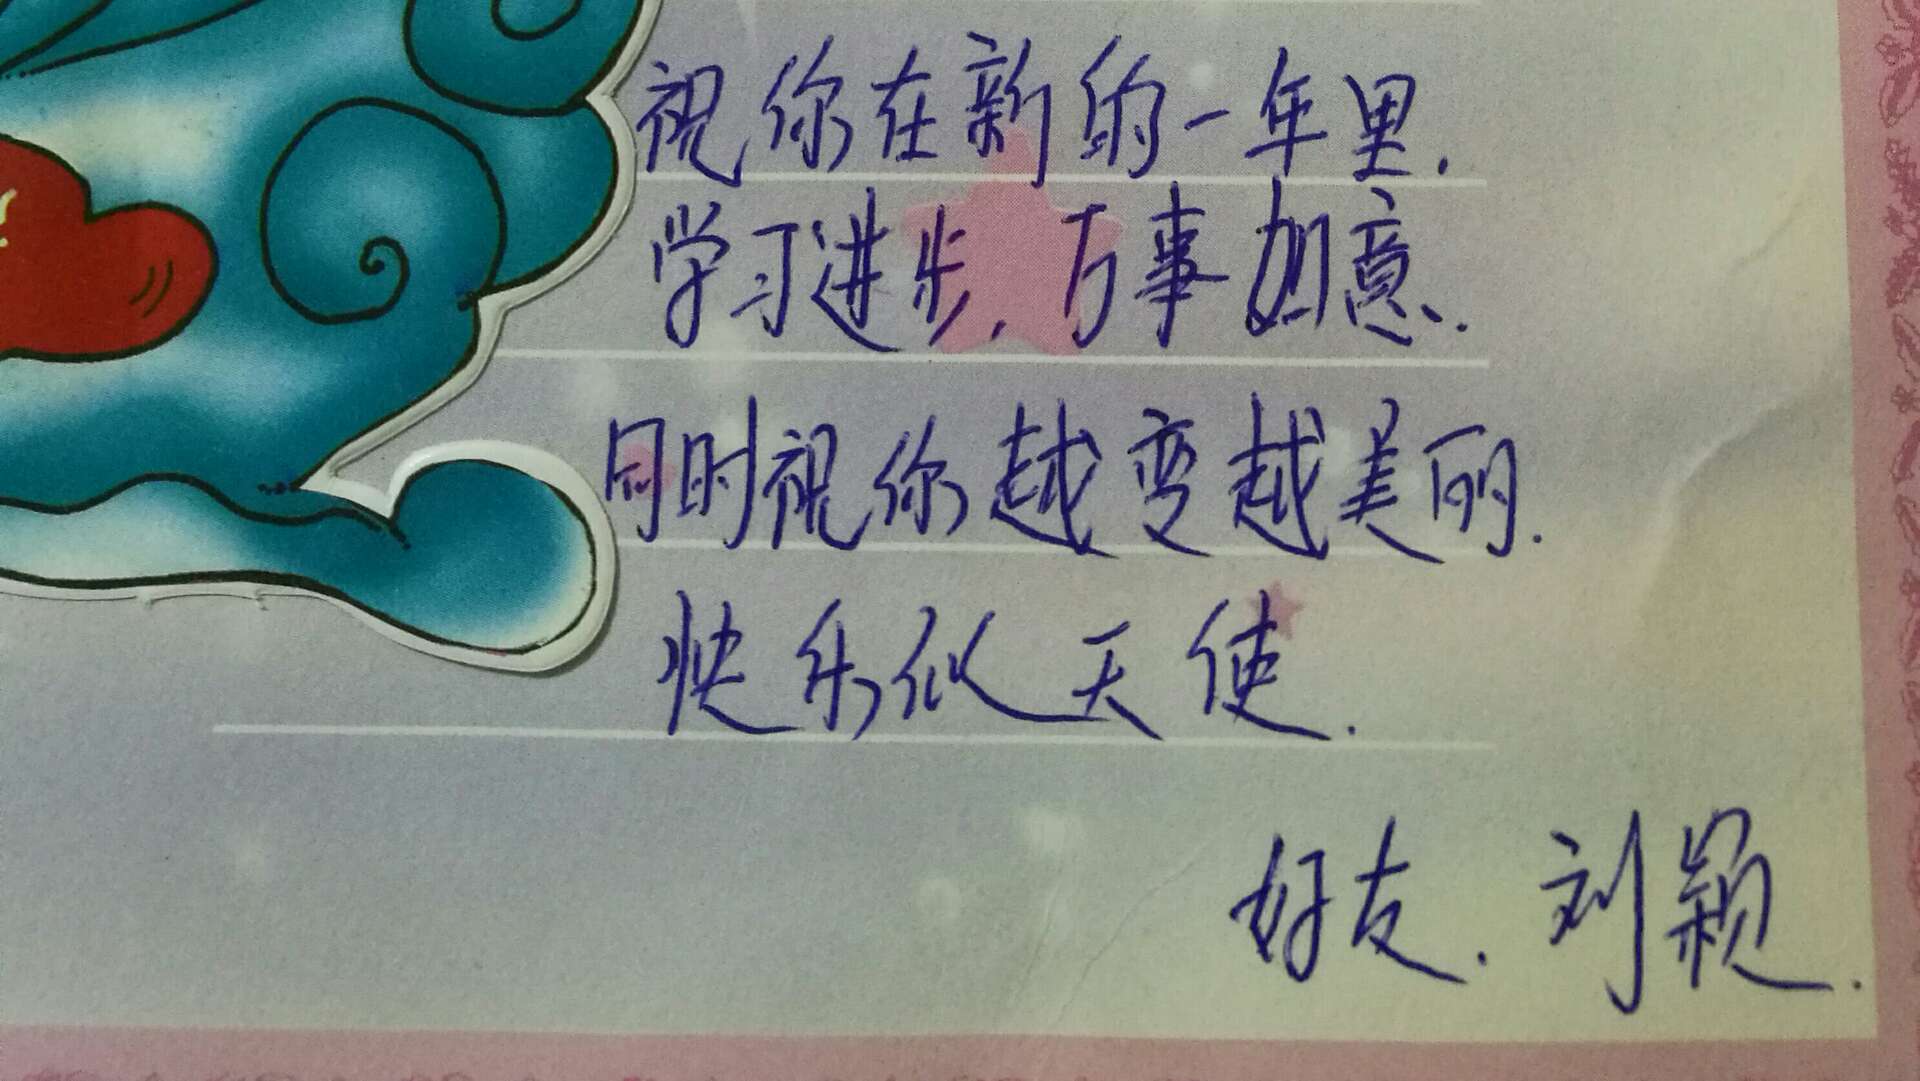 祝你在新的一年里.
学习进步.万事如意.
同时祝你越变越美丽.
快乐似天使.
好友.刘颖.